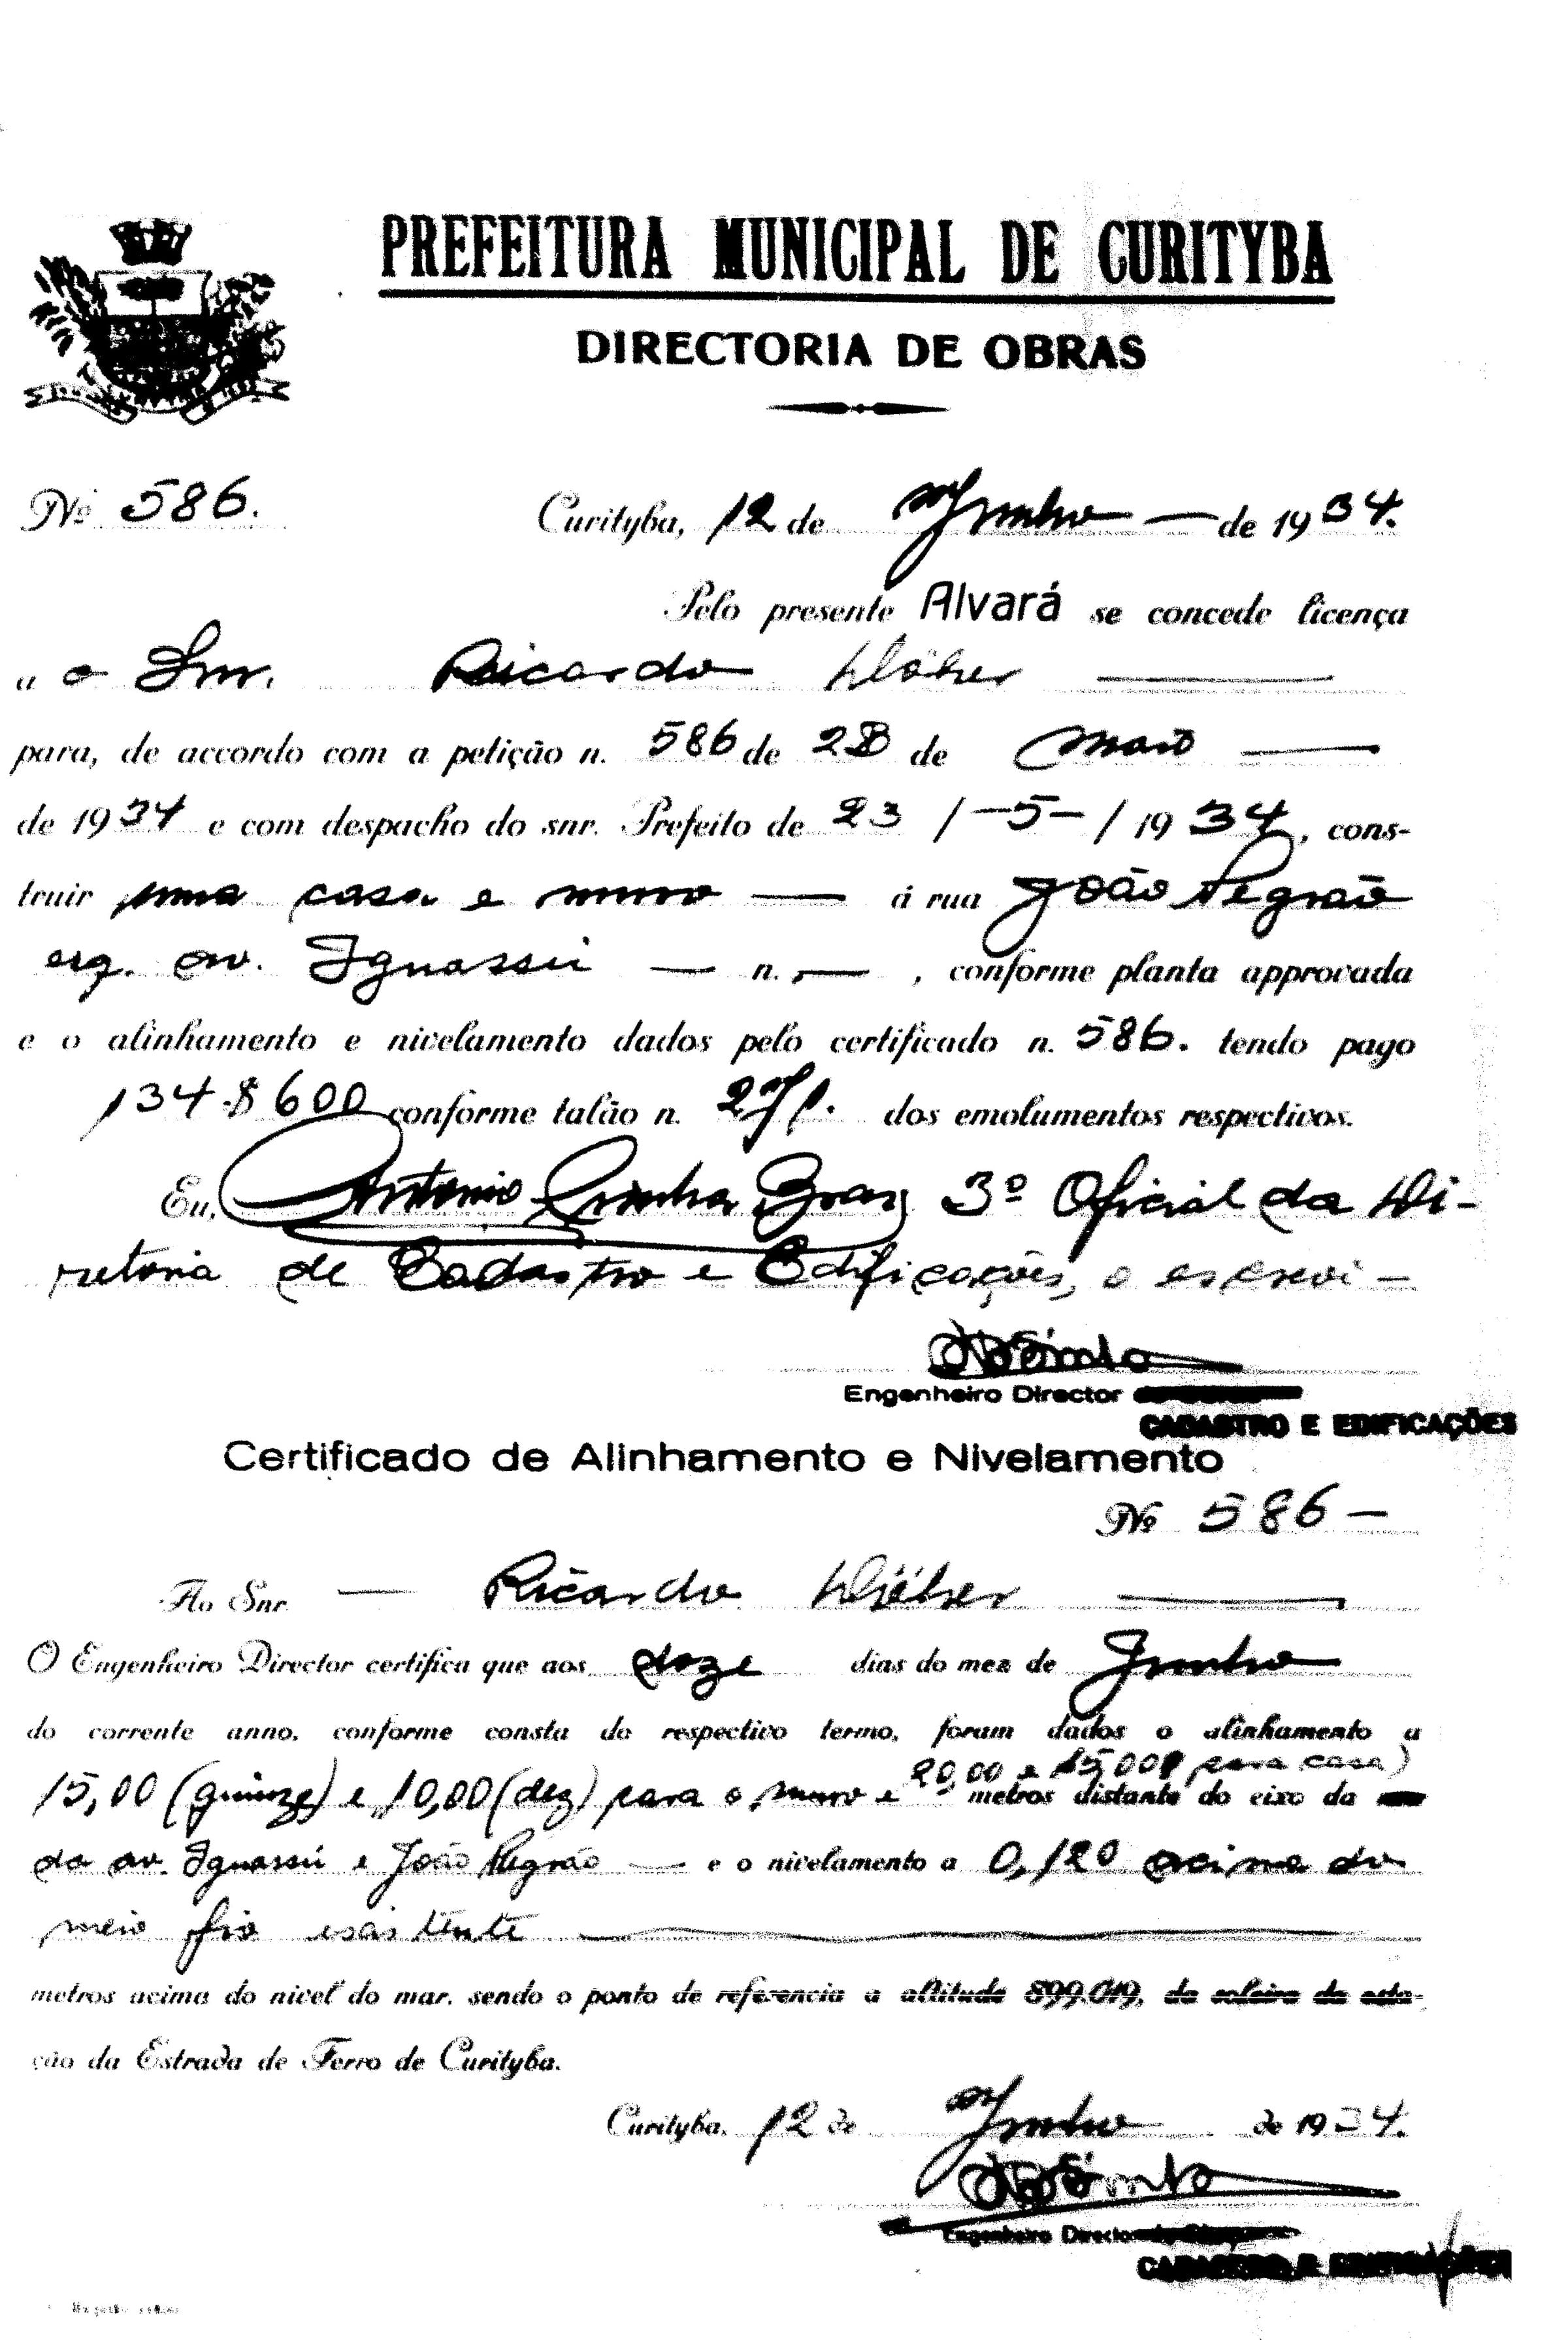 PREFEITURA MUNICIPAL DE CURITYBA
DIRECTORIA DE OBRAS
Nº 586.
Curityba, 12 de Junho — de 1934.
Pelo presente Alvará se concede licença
a o Snr. Ricardo
para, de accordo com a petição n. 586 de de Maio
de 1934 e com despacho do snr. Prefeito de 23 / -5- / 1934, cons-
truir uma casa e muro — á rua João Negrão
esq. av. Iguassú — n. — , conforme planta approvada
e o alinhamento e nivelamento dados pelo certificado n. 586. tendo pago
134$600 conforme talão n. dos emolumentos respectivos.
Eu, Antonio 3º Oficial da Di-
retoria de Cadastro e Edificações, o escrevi —
Engenheiro Director
CADASTRO E EDIFICAÇÕES
Certificado de Alinhamento e Nivelamento
Nº 586 —
Ao Snr. — Ricardo
O Engenheiro Director certifica que aos doze dias do mez de Junho
do corrente anno, conforme consta do respectivo termo, foram dados o alinhamento a
20,00 e 15,00 para casa)
15,00 (quinze) e 10,00 (dez) para o muro e metros distante do eixo da
da av. Iguassú e João Negrão — e o nivelamento a 0,120 acima do
meio fio existente
metros acima do nivel do mar, sendo o ponto de referencia a altitude 899.019, da soleira da esta-
ção da Estrada de Ferro de Curityba.
Curityba, 12 de Junho de 1934.
Engenheiro Director
CADASTRO E EDIFICAÇÕES